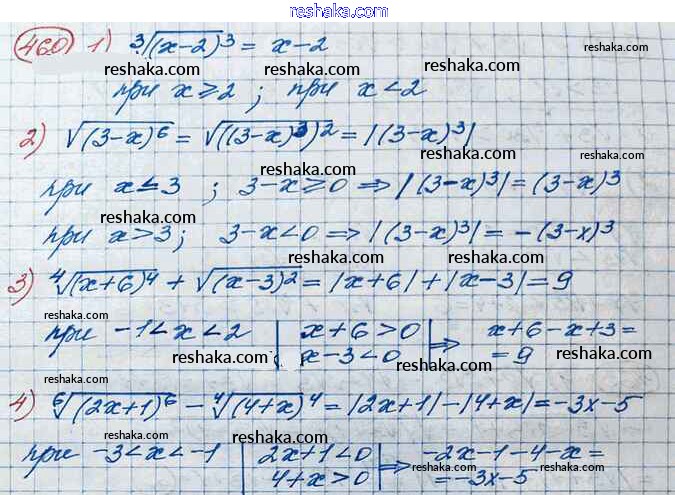 www.reshaka.com
460 1) ³√(x-2)³ = x-2
reshaka.com reshaka.com
при x ≥ 2 ; при x < 2
reshaka.com reshaka.com
2) √(3-x)⁶ = √((3-x)³)² = |(3-x)³|
reshaka.com
при x ≤ 3 ; 3-x ≥ 0 ⇒ |(3-x)³| = (3-x)³
reshaka.com reshaka.com
при x > 3; 3-x < 0 ⇒ |(3-x)³| = -(3-x)³
reshaka.com reshaka.com
3) ⁴√(x+6)⁴ + √(x-3)² = |x+6| + |x-3| = 9
reshaka.com reshaka.com
при -1 < x < 2 | x+6 > 0 | ⇒ x+6-x+3 =
x-3 < 0 = 9
reshaka.com reshaka.com
reshaka.com
4) ⁶√(2x+1)⁶ - ⁴√(4+x)⁴ = |2x+1| - |4+x| = -3x-5
reshaka.com reshaka.com
при -3 < x < -1 | 2x+1 < 0 | ⇒ -2x-1-4-x =
4+x > 0 = -3x-5
reshaka.com reshaka.com reshaka.com